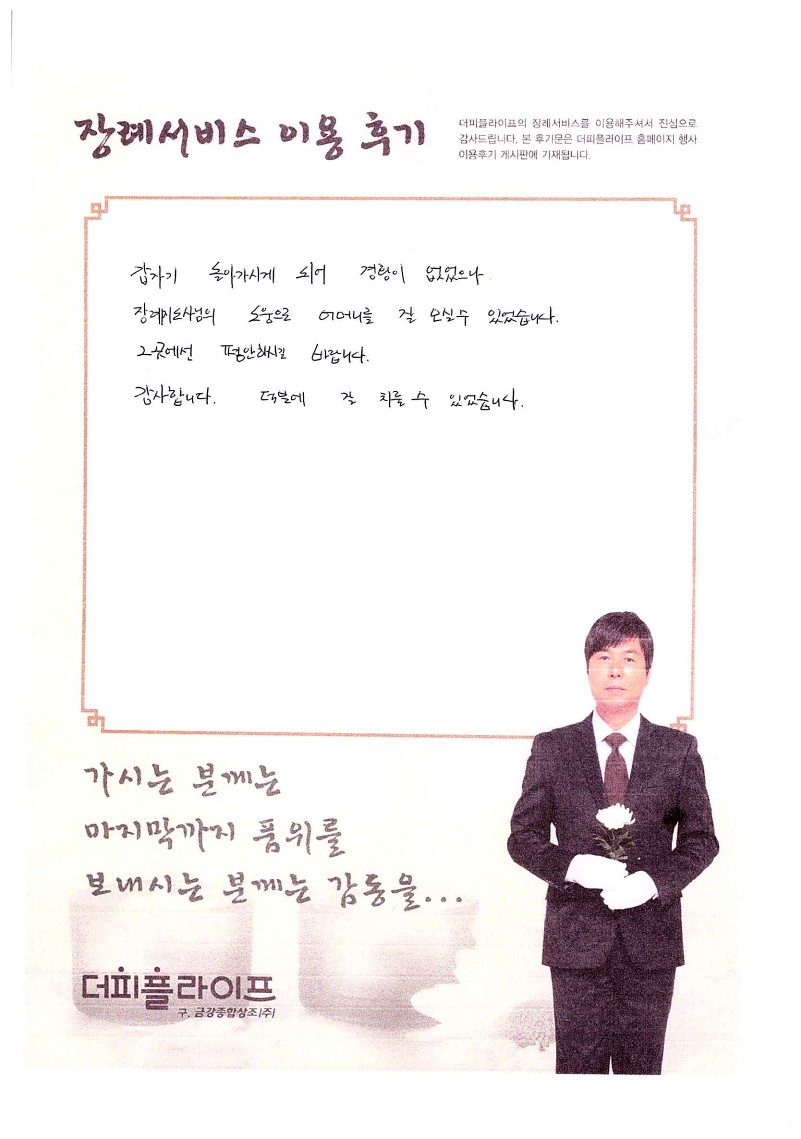 장례서비스 이용 후기
더피플라이프의 장례서비스를 이용해주셔서 진심으로
감사드립니다. 본 후기문은 더피플라이프 홈페이지 행사
이용후기 게시판에 기재됩니다.
갑자기 돌아가시게 되어 경황이 없었으나
장례지도사님의 도움으로 어머니를 잘 모실수 있었습니다.
그곳에선 평안하시길 바랍니다.
감사합니다. 덕분에 잘 치를 수 있었습니다.
가시는 분께는
마지막까지 품위를
보내시는 분께는 감동을...
더피플라이프
구. 금강종합상조(주)